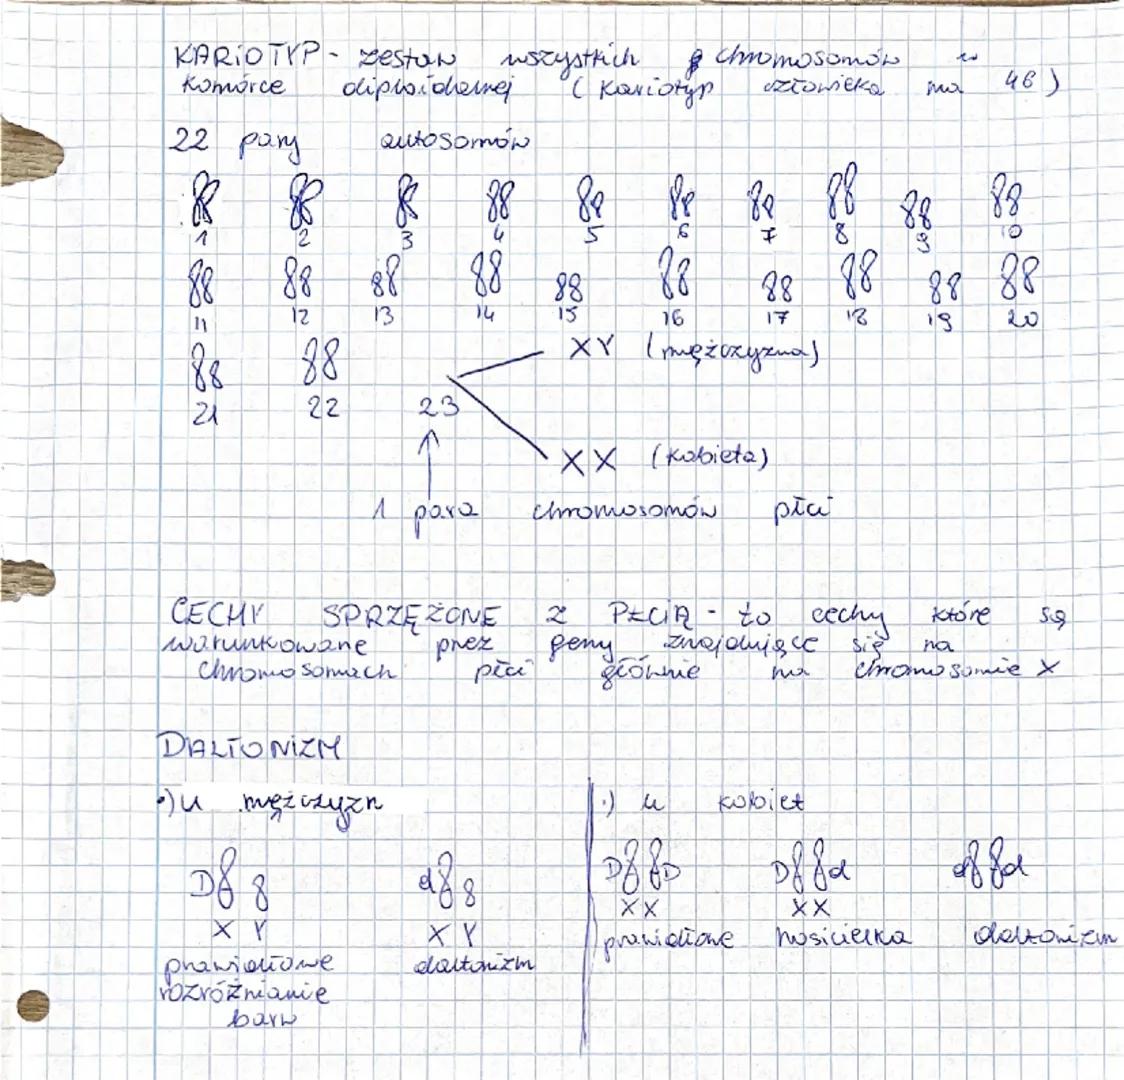 KARIOTYP - zestaw wszystkich chromosomów w
komórce diploidalnej ( Kariotyp człowieka ma 46 )
22 pary autosomów
1 2 3 4 5 6 7 8 9 10
11 12 13 14 15 16 17 18 19 20
XY (mężczyzna)
21 22 23
XX (kobieta)
1 para chromosomów płci
CECHY SPRZĘŻONE Z PŁCIĄ - to cechy które są
warunkowane przez geny znajdujące się na
chromosomach płci głównie na chromosomie X
DALTONIZM
•) u mężczyzn
D d
X Y X Y
prawidłowe daltonizm
rozróżnianie
barw
•) u kobiet
D D D d d d
XX XX
prawidłowe nosicielka daltonizm